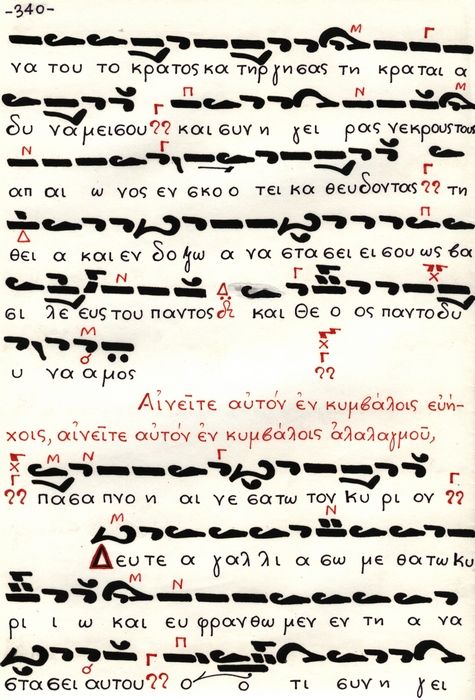 -340-
να του το κρατος κα τηρ γησας τη κραται α
δυ να μει σου και συν η γει ρας νεκρους τους
απ αι ω νος εν σκο ο τει κα θευδοντας τη
θει α και εν δο ξω α να στασει ει σου ως βα
σι λε ευς του παντος και Θε ο ος παντο δυ
υ να α μος
Αἰνεῖτε αὐτόν ἐν κυμβάλοις εὐή-
χοις, αἰνεῖτε αὐτόν ἐν κυμβάλοις ἀλαλαγμοῦ,
πασα πνο η αι νε σατω τον κυ ρι ον
Δευτε α γαλ λι α σω με θα τω κυ
ρι ι ω και ευ φρανθω μεν εν τη α να
στασει αυτου ο ο τι συν η γει